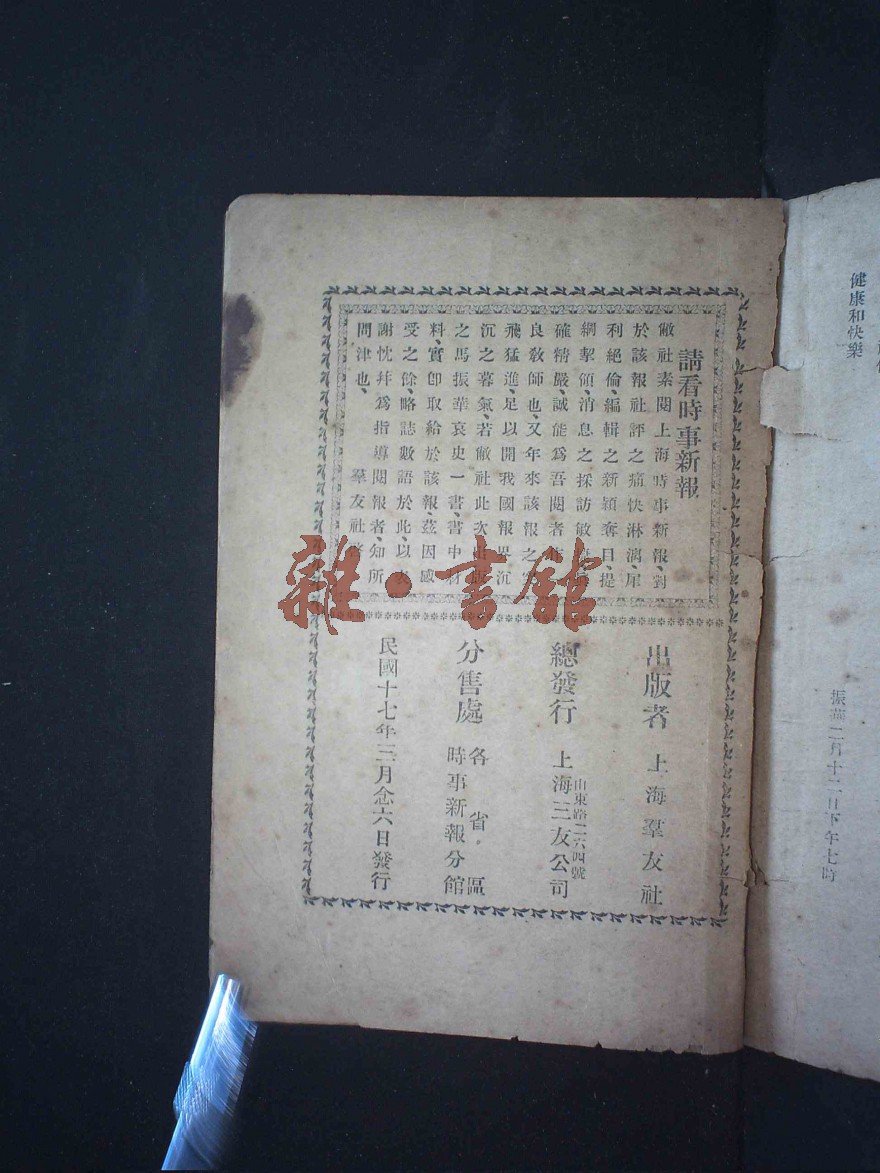 請看時事新報
敝社素閱上海時事新報、對
於該報社評之痛快淋漓、犀
利絕倫、編輯之新穎奪目、提
網挈領消息之採訪敏
確精嚴、誠能爲吾閱者
良敎師也、又年來該報之
飛猛進、足以開我國報界沉
沉之暮氣、若敝社此次出版
之馬振華哀史一書、書中材
料、實卽取給於該報、茲因感
受之餘、略誌數語於此、以表
謝忱、幷爲指導閱報者、知所
問津也、
羣友社啓
出版者 上海羣友社
總發行 上海三友公司
山東路二六四號
分售處 各省區
時事新報分館
民國十七年三月念六日發行
雜·書館
健康和快樂
振華二月十二日下午七時